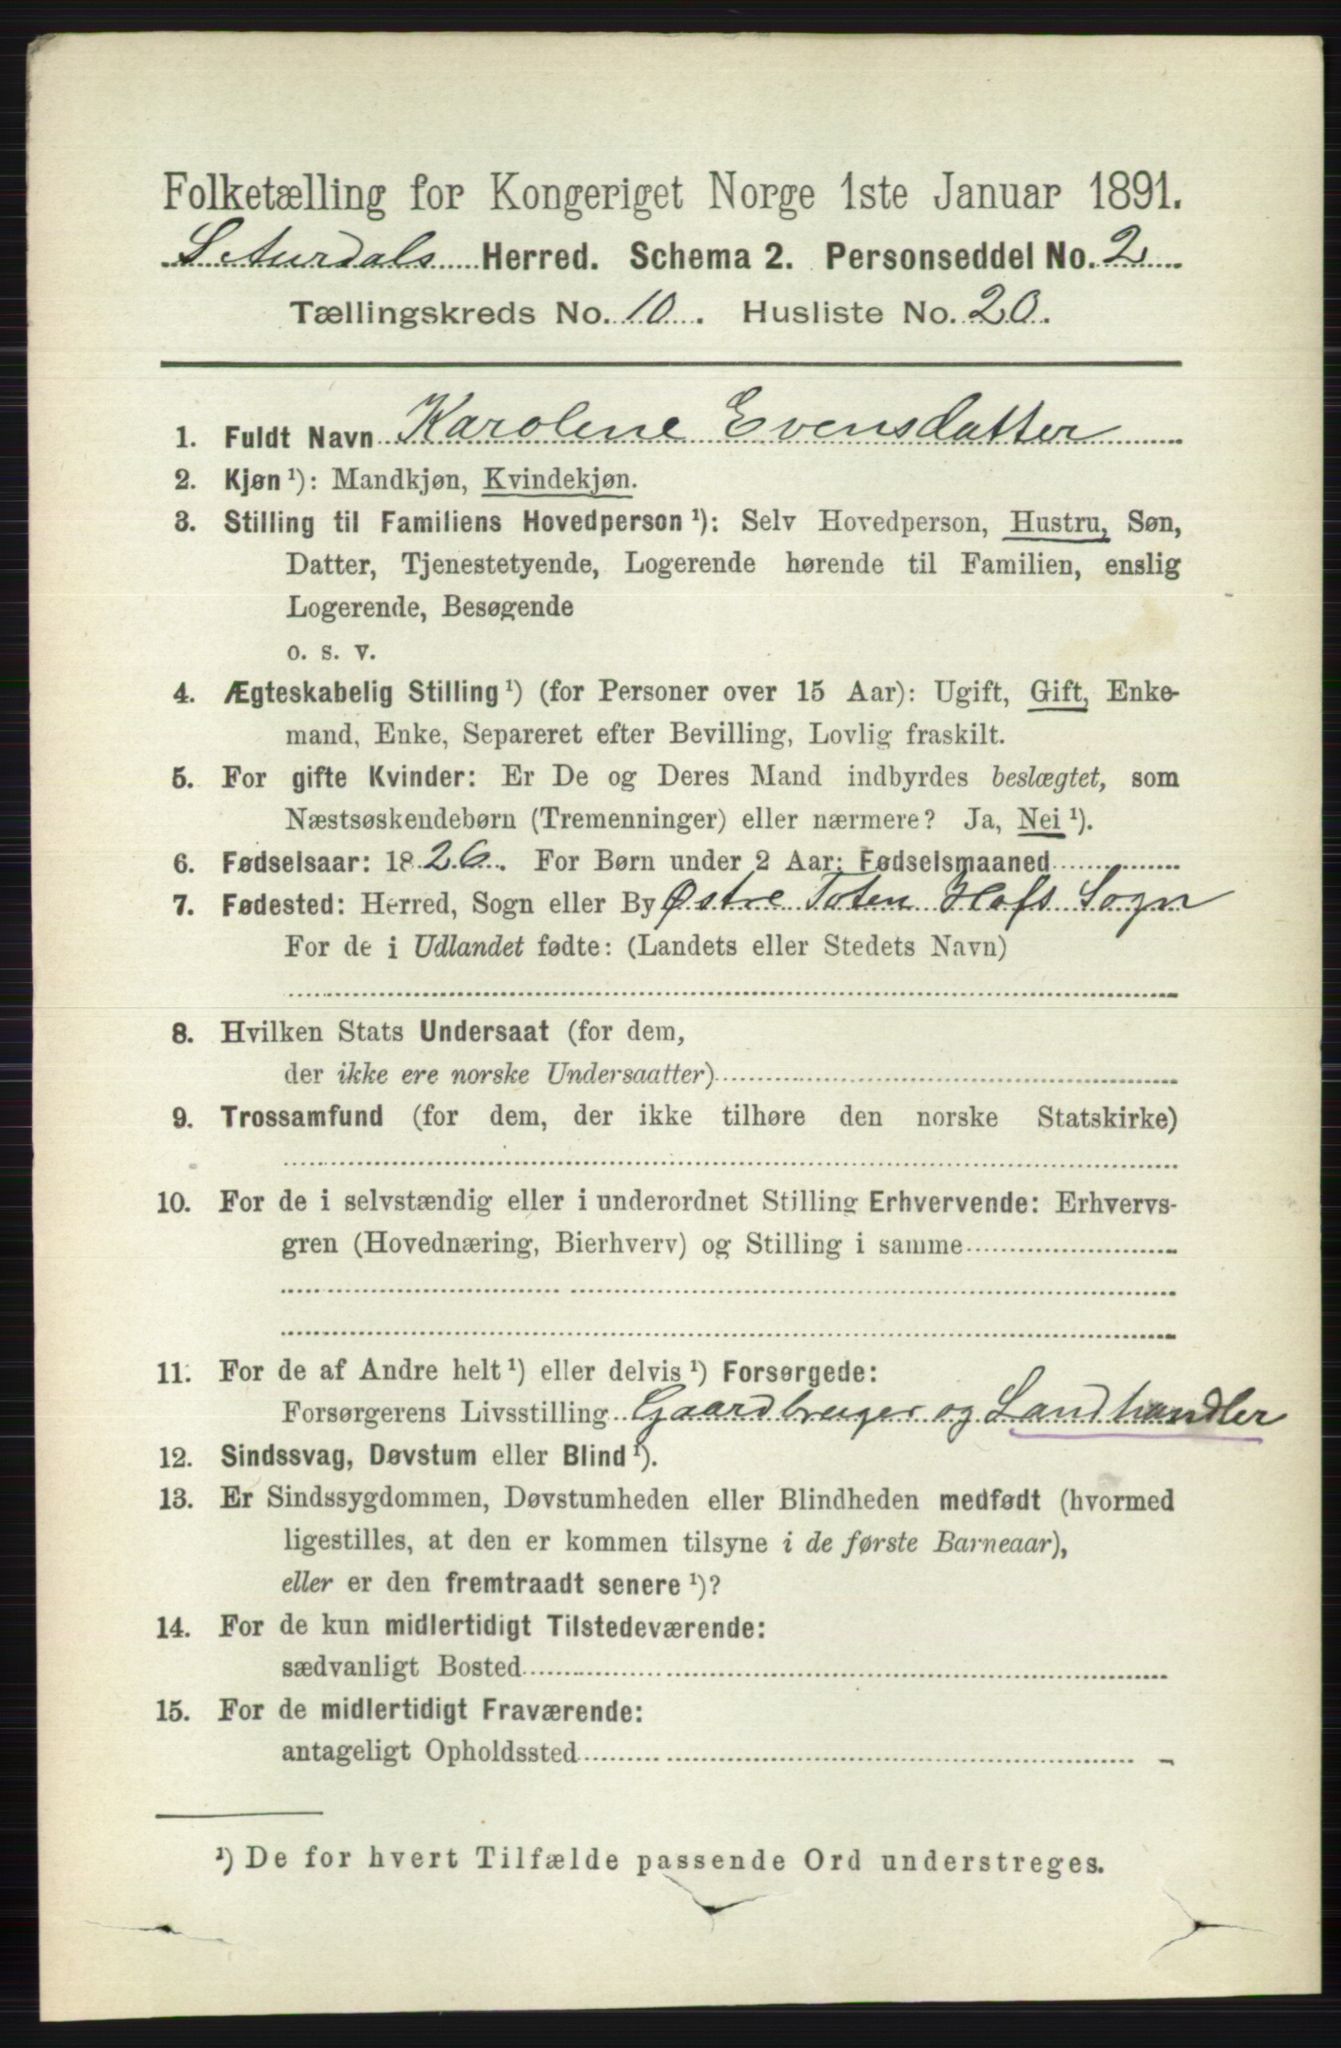 Folketælling for Kongeriget Norge 1ste Januar 1891.
S. Aurdals Herred. Schema 2. Personseddel No. 2
Tællingskreds No. 10. Husliste No. 20.
1. Fuldt Navn Karolene Evensdatter
2. Kjøn ¹): Mandkjøn, Kvindekjøn.
3. Stilling til Familiens Hovedperson ¹): Selv Hovedperson, Hustru, Søn,
Datter, Tjenestetyende, Logerende hørende til Familien, enslig
Logerende, Besøgende
o. s. v.
4. Ægteskabelig Stilling ¹) (for Personer over 15 Aar): Ugift, Gift, Enke-
mand, Enke, Separeret efter Bevilling, Lovlig fraskilt.
5. For gifte Kvinder: Er De og Deres Mand indbyrdes beslægtet, som
Næstsøskendebørn (Tremenninger) eller nærmere? Ja, Nei ¹).
6. Fødselsaar: 1826. For Børn under 2 Aar: Fødselsmaaned
7. Fødested: Herred, Sogn eller By Østre Toten Hofs Sogn
For de i Udlandet fødte: (Landets eller Stedets Navn)
8. Hvilken Stats Undersaat (for dem,
der ikke ere norske Undersaatter)
9. Trossamfund (for dem, der ikke tilhøre den norske Statskirke)
10. For de i selvstændig eller i underordnet Stilling Erhvervende: Erhvervs-
gren (Hovednæring, Bierhverv) og Stilling i samme
11. For de af Andre helt ¹) eller delvis ¹) Forsørgede:
Forsørgerens Livsstilling Gaardbruger og Landhandler
12. Sindssvag, Døvstum eller Blind ¹).
13. Er Sindssygdommen, Døvstumheden eller Blindheden medfødt (hvormed
ligestilles, at den er kommen tilsyne i de første Barneaar),
eller er den fremtraadt senere ¹)?
14. For de kun midlertidigt Tilstedeværende:
sædvanligt Bosted
15. For de midlertidigt Fraværende:
antageligt Opholdssted
¹) De for hvert Tilfælde passende Ord understreges.